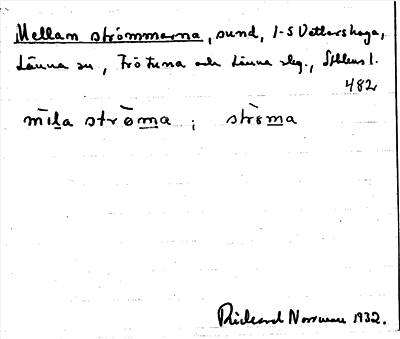 Mellan strömmarna, sund, 1-S Vettershaga,
Länna sn, Frötuna och Länna slg., Sthlms l.
482
mila ströma ; ströma
Rickard Norrman 1932.